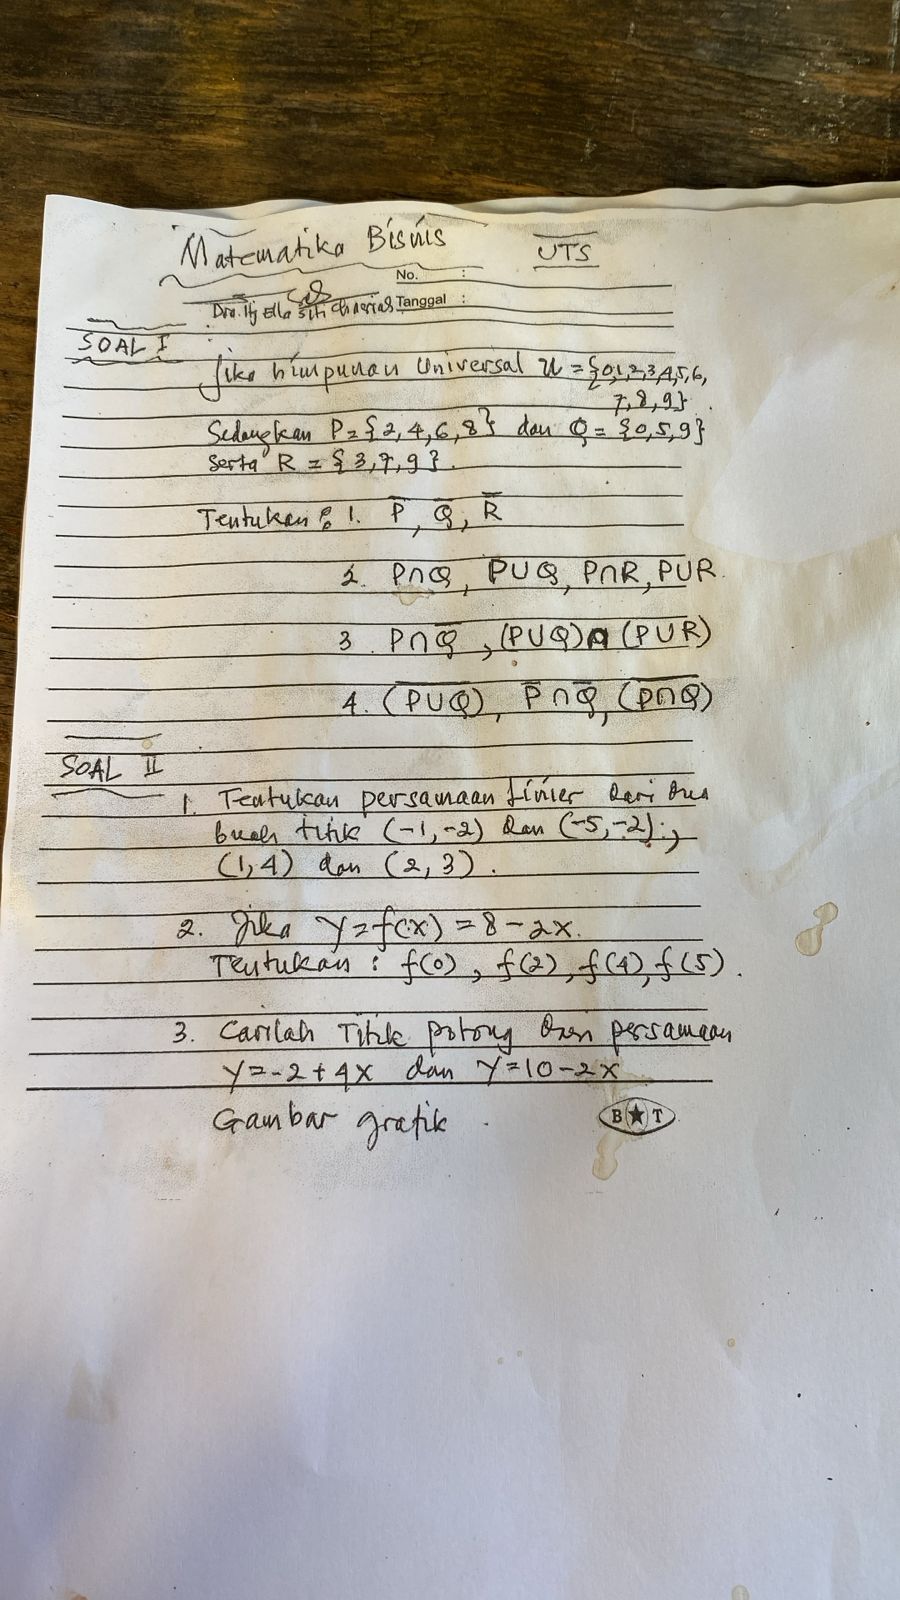 Matematika Bisnis
UTS
No. :
Dra. Hj Ella Siti Tanggal :
SOAL I
Jika himpunan Universal U = {0,1,2,3,4,5,6,
7,8,9}.
Sedangkan P = {2,4,6,8} dan Q = {0,5,9}
serta R = {3,7,9}.
Tentukan : 1. P̅, Q̅, R̅
2. P∩Q, P∪Q, P∩R, P∪R.
3. P∩Q̅, (P∪Q)∩(P∪R)
4. (P̅∪̅Q̅), P̅∩Q̅, (P̅∩̅Q̅)
SOAL II
1. Tentukan persamaan Linier dari dua
buah titik (-1,-2) dan (-5,-2);
(1,4) dan (2,3).
2. Jika y = f(x) = 8 - 2x.
Tentukan : f(0), f(2), f(4), f(5).
3. Carilah Titik potong dari persamaan
y = -2 + 4x dan y = 10 - 2x
Gambar grafik.
B★T